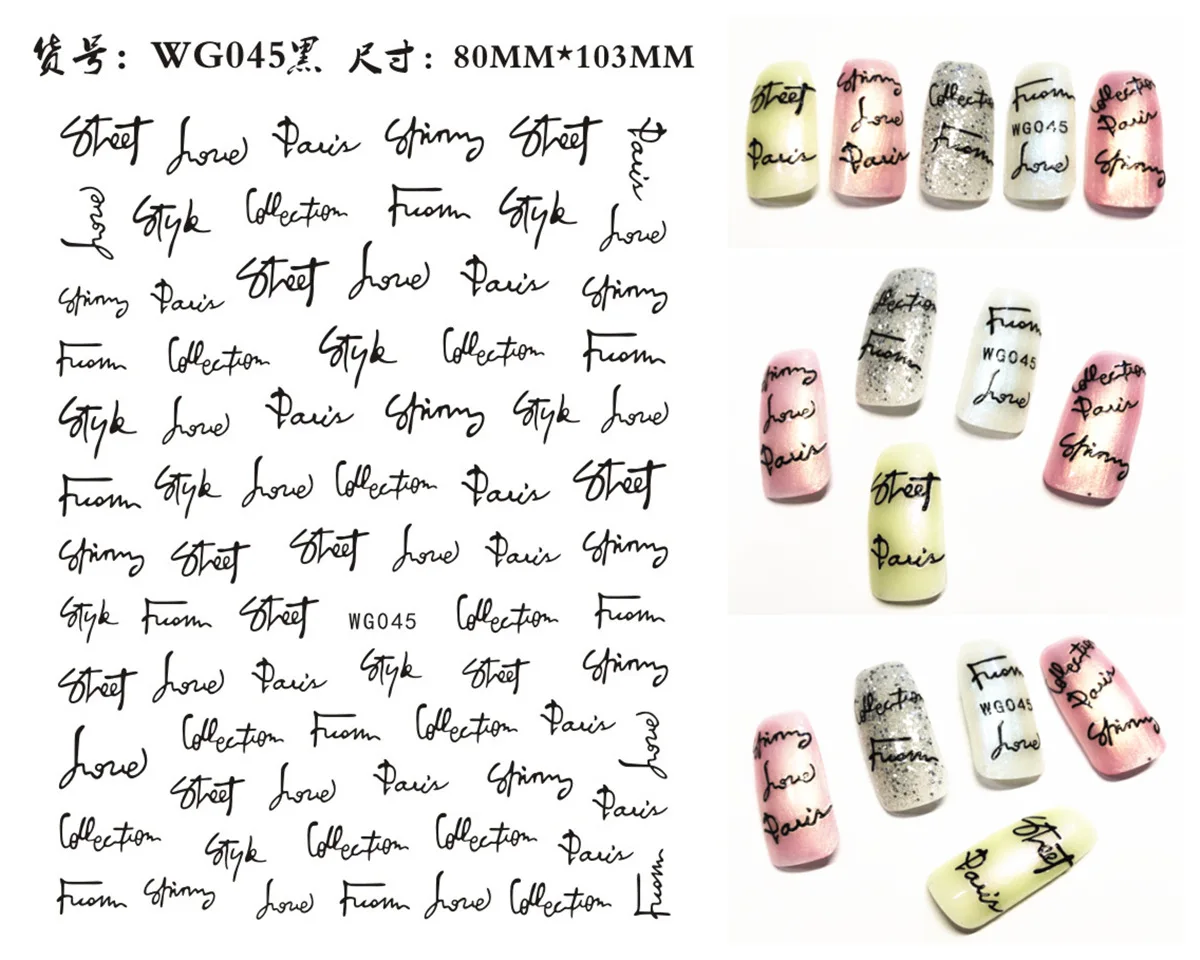 货号：WG045黑 尺寸：80MM*103MM
Street Love Paris Spinny Street Paris
Love Style Collection From Style Love
Spinny Paris Street Love Paris Spinny
From Collection Style Collection From
Style Love Paris Spinny Style Love
From Style Love Collection Paris Street
Spinny Street Street Love Paris Spinny
Style From Street WG045 Collection From
Street Love Paris Style Street Spinny
Love Collection From Collection Paris Love
Street Love Paris Spinny Paris
Collection Style Collection Collection Paris
From Spinny Love From Love Collection From
Street
Paris
Spinny
Love
Paris
Collection
From
From
WG045
Love
Collection
Paris
Spinny
Spinny
Love
Paris
Collection
From
From
WG045
Love
Collection
Paris
Spinny
Street
Paris
Spinny
Love
Paris
Collection
From
From
WG045
Love
Collection
Paris
Spinny
Street
Paris